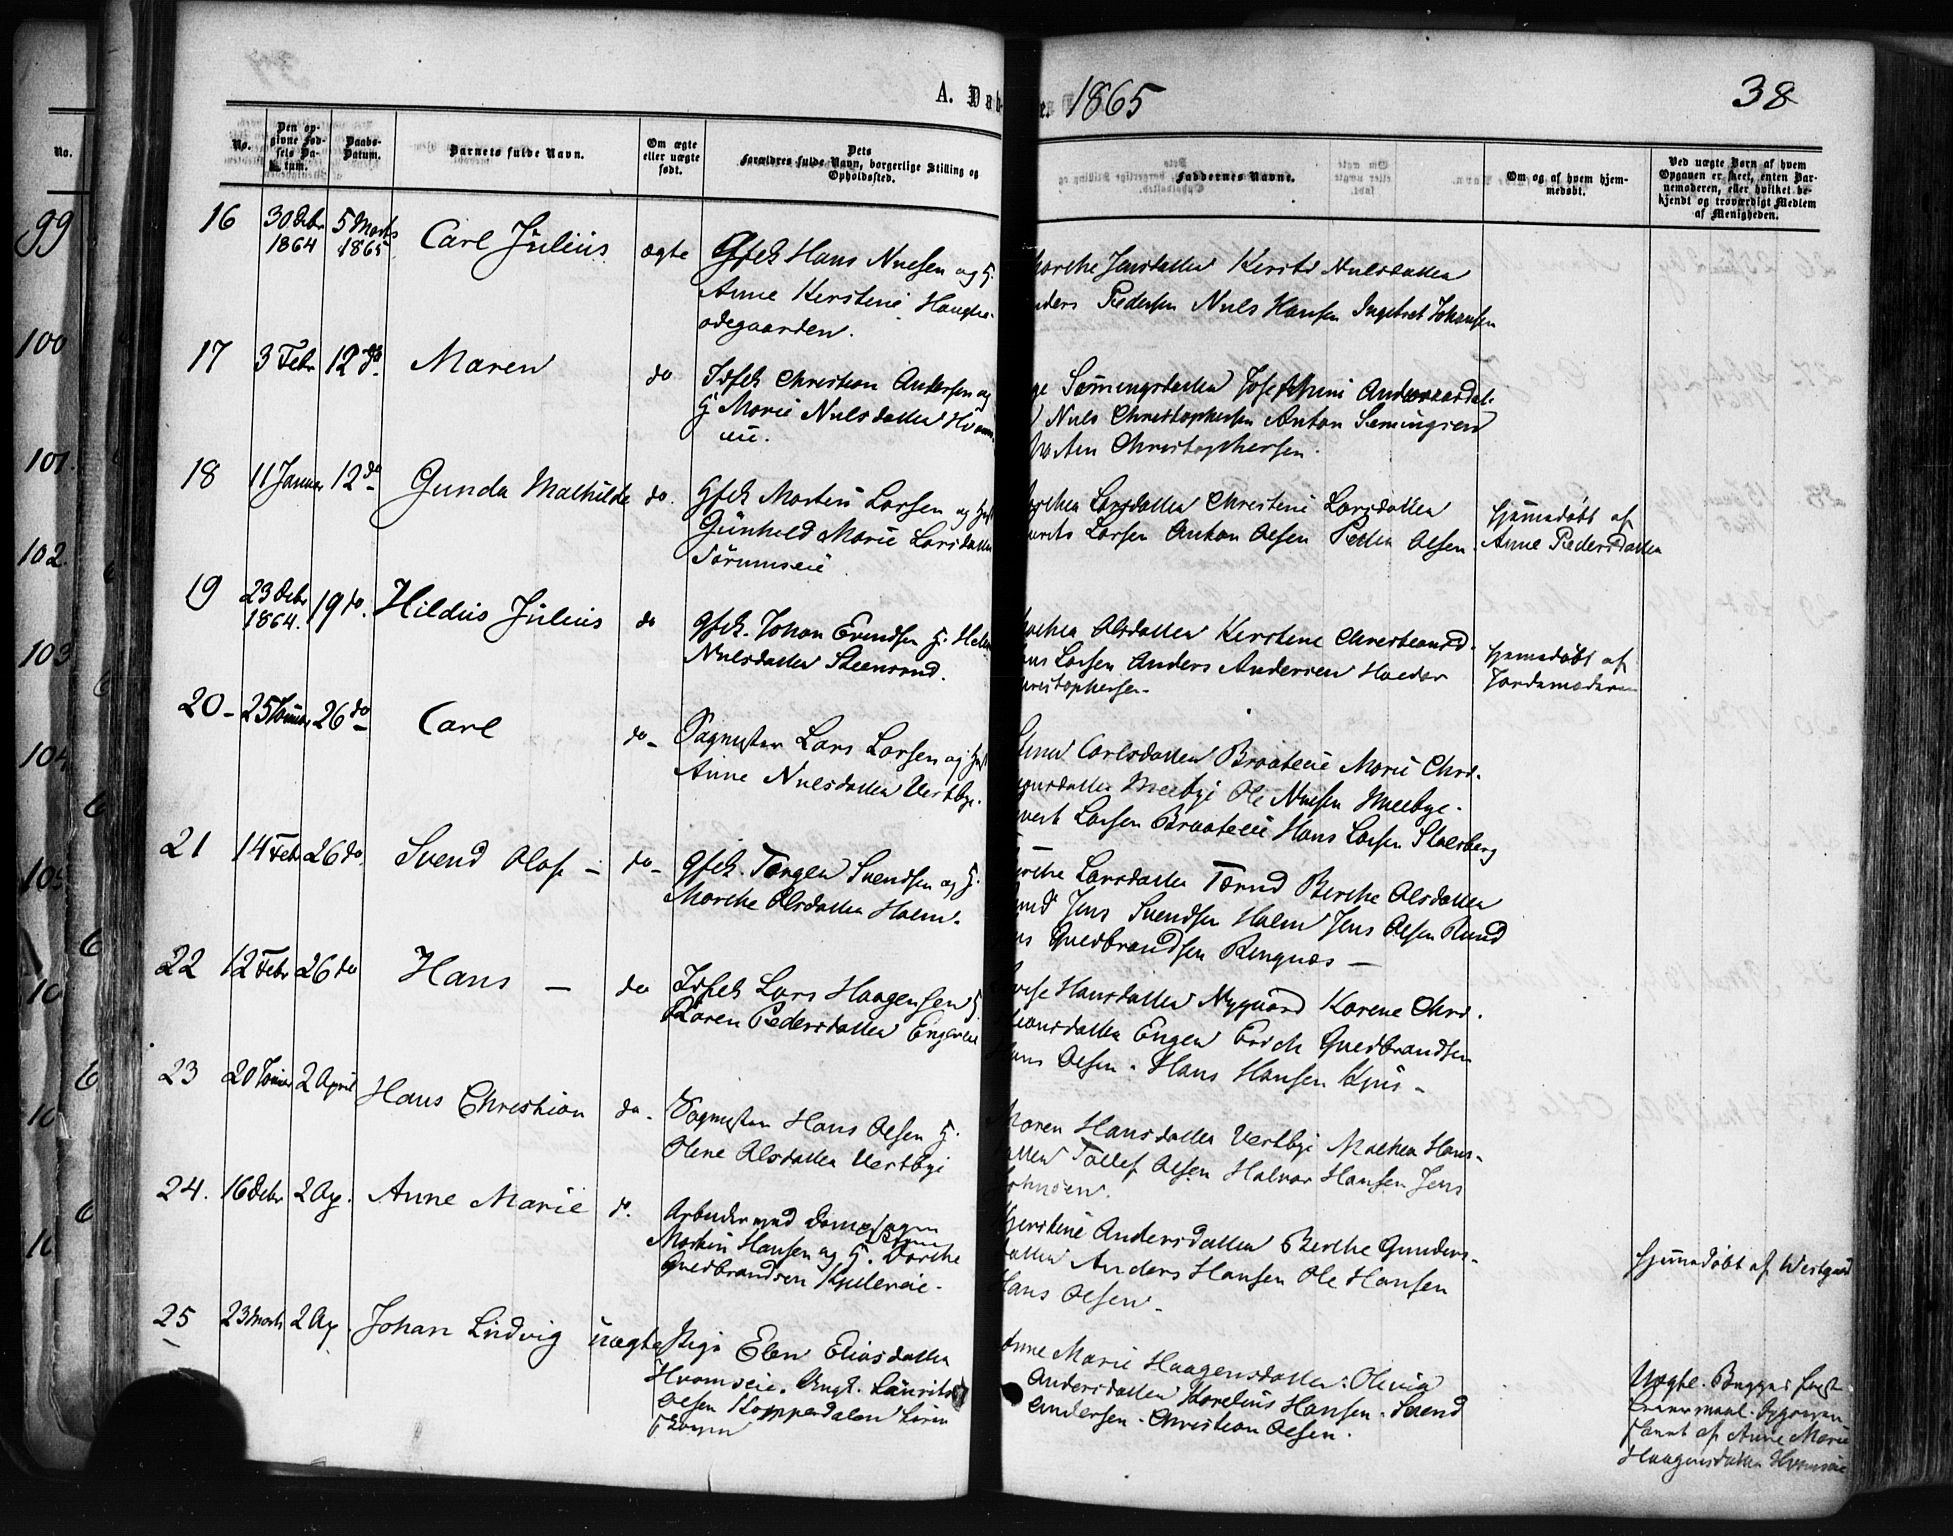 A. Døb
e. 1865
38
No.
Den opgivne Fødsels Datum.
Daabs-Datum.
Barnets fulde Navn.
Om ægte eller uægte født.
Dets Forældres fulde Navn, borgerlige Stilling og Opholdssted.
Faddernes Navne.
Om og af hvem hjemmedøbt.
Ved uægte Børn af hvem Opgaven er skeet, enten Barnemoderen, eller hvilket bekjendt og troværdigt Medlem af Menigheden.
16
30 Debr
1864
5 Marts
1865
Carl Julius
ægte
Gfek Hans Nielsen og H.
Anne Kerstine Haugner
ødegaarden.
Marthe Jensdatter Kersti Nilsdatter
Anders Pedersen Nils Hansen Ingebret Johansen
17
3 Febr
12 do
Maren
do
Idfek Christian Andersen og
H. Marie Nilsdatter Hvam
eie.
Semingsdatter Josephine Andersdat.
Nils Christophersen Anton Semingsen
Christophersen.
18
11 Januar
12 do
Gunda Mathilde
do.
Gfek Martin Larsen og Hust
Gunhild Marie Larsdatter
Sørumseie
Larsdatter Christine Larsdatter
Laurits Larsen Anton Olsen Peder Olsen.
hjemmedøbt af
Anne Pedersdatter
19
23 Debr
1864.
19 do.
Hildus Julius
do
Gfek. Johan Evendsen H. Helene
Nilsdatter Steensrud.
Olsdatter Kerstine Christiansd.
Larsen Anders Andersen Halvor
Christophersen-
hjemmedøbt af
Jordemoderen
20-
25 Januar
26 do
Carl
do-
Sagmester Lars Larsen og Hust
Anne Nilsdatter Vestbye.
Carlsdatter Braateeie Marie Chri-
Meebye Ole Nilsen Meebye.
Larsen Braateeie Hans Larsen Stalsberg
21
14 Febr
26 do
Svend Olaf -
do-
Gfek. Torgen Svendsen og H.
Marthe Olsdatter Holm.
Larsdatter Tørud Berthe Olsdatter
Jens Svendsen Holm Jens Olsen Ruud
Gulbrandsen Ringnæs -
22
12 Febr
26 do
Hans -
do
Idfek Lars Haagensen H.
Karen Pedersdatter Engereie
Hansdatter Nygaard Karene Chri-
stiansdatter Engen Erich Gulbrandsen
Hans Olsen. Hans Hansen Kjus -
23
20 Januar
2 April
Hans Christian
do.
Sagmester Hans Olsen H.
Olene Olsdatter Vestbye
Maren Hansdatter Vestbye Mathea Hans-
datter Tollef Olsen Halvor Hansen Jens
Johnsen.
24.
16 Debr
2 Ap.
Anne Marie
do.
Arbeider ved Dampsagen
Martin Hansen og H. Dorthe
Gulbrandsen Kjulereie.
Kjerstine Andersdatter Berthe Gunders-
datter Anders Hansen Ole Hansen
Hans Olsen-
hjemmedøbt af Westgaard
25
23 Marts
2 Ap.
Johan Ludvig
uægte
Pige Elen Eliasdatter
Hvamseie. Ungk. Laurits
Olsen Kopperdalen
Anne Marie Haagensdatter. Olivia
Andersdatter Karelius Hansen. Svend
Andersen. Christian Olsen.
Uægte. Begges første
Leiermaal. Opgaven
af Anne Marie
Haagensdatter Hvamseie
99
100
101.
102.
103
104
105